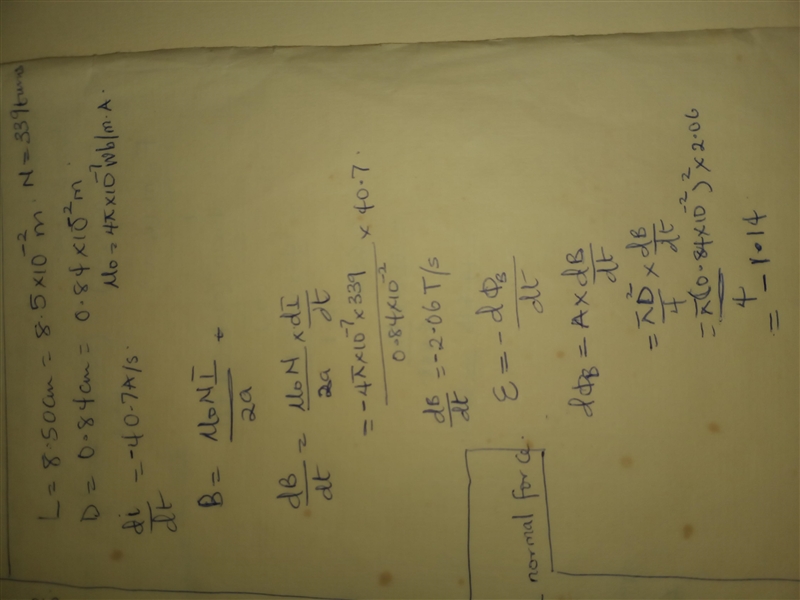 L = 8.50cm = 8.5×10⁻² m. N = 339 turns
D = 0.84cm = 0.84×10⁻² m.
di/dt = -40.7A/s. μ₀ = 4π×10⁻⁷ Wb/m.A.
B = μ₀NI/2a
dB/dt = μ₀N/2a × dI/dt
= -4π×10⁻⁷×339/0.84×10⁻² × 40.7.
dB/dt = -2.06T/s
ε = -dΦB/dt
dΦB = A×dB/dt
= πD²/4 × dB/dt
= π(0.84×10⁻²)²×2.06/4
= -1.14
normal force.